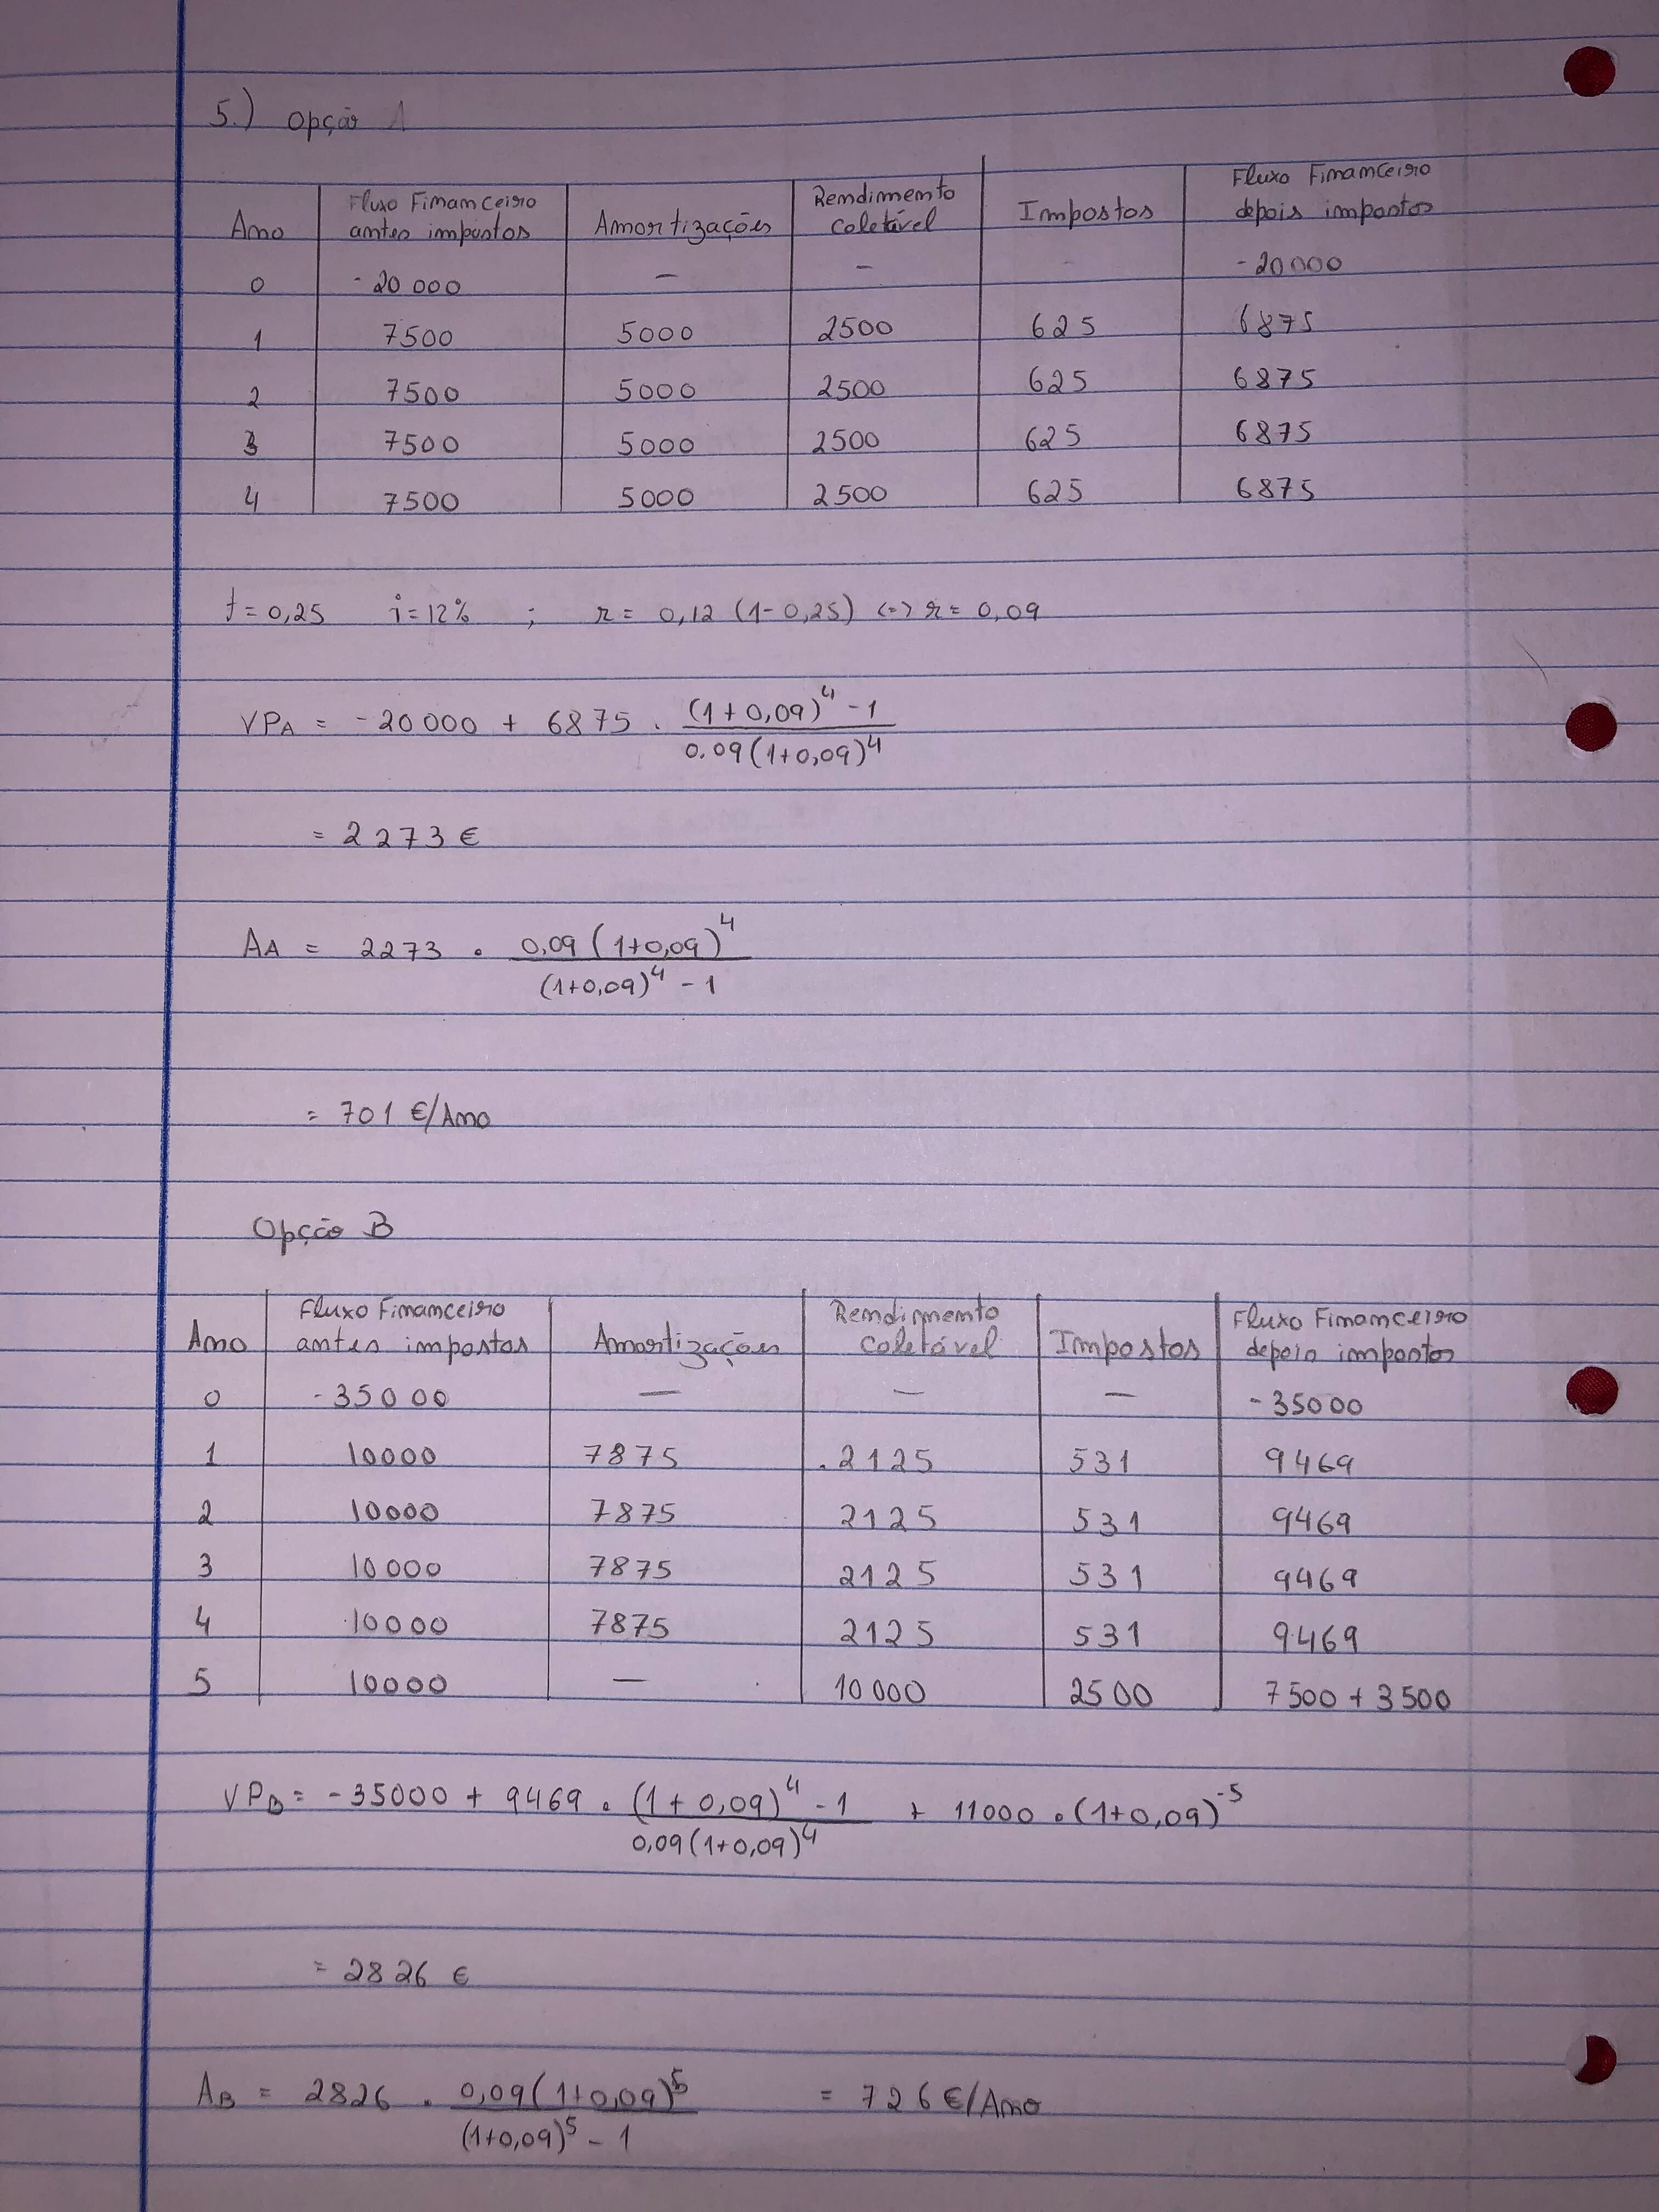 5.) Opção A
Ano | Fluxo Financeiro antes impostos | Amortizações | Rendimento coletável | Impostos | Fluxo Financeiro depois impostos
0 | -20 000 | — | — | - | -20000
1 | 7500 | 5000 | 2500 | 625 | 6875
2 | 7500 | 5000 | 2500 | 625 | 6875
3 | 7500 | 5000 | 2500 | 625 | 6875
4 | 7500 | 5000 | 2500 | 625 | 6875
t = 0,25 i = 12% ; r = 0,12 (1 - 0,25) <=> r = 0,09
VPA = -20 000 + 6875 . ((1+0,09)^4 - 1) / (0.09(1+0,09)^4)
= 2273 €
AA = 2273 . (0,09(1+0,09)^4) / ((1+0,09)^4 - 1)
= 701 €/Ano
Opção B
Ano | Fluxo Financeiro antes impostos | Amortizações | Rendimento Coletável | Impostos | Fluxo Financeiro depois impostos
0 | -35000 | — | — | — | -35000
1 | 10000 | 7875 | 2125 | 531 | 9469
2 | 10000 | 7875 | 2125 | 531 | 9469
3 | 10000 | 7875 | 2125 | 531 | 9469
4 | 10000 | 7875 | 2125 | 531 | 9469
5 | 10000 | — | 10 000 | 2500 | 7500 + 3500
VPB = -35000 + 9469 . ((1+0,09)^4 - 1) / (0,09(1+0,09)^4) + 11000 . (1+0,09)^-5
= 2826 €
AB = 2826 . (0,09(1+0,09)^5) / ((1+0,09)^5 - 1) = 726 €/Ano